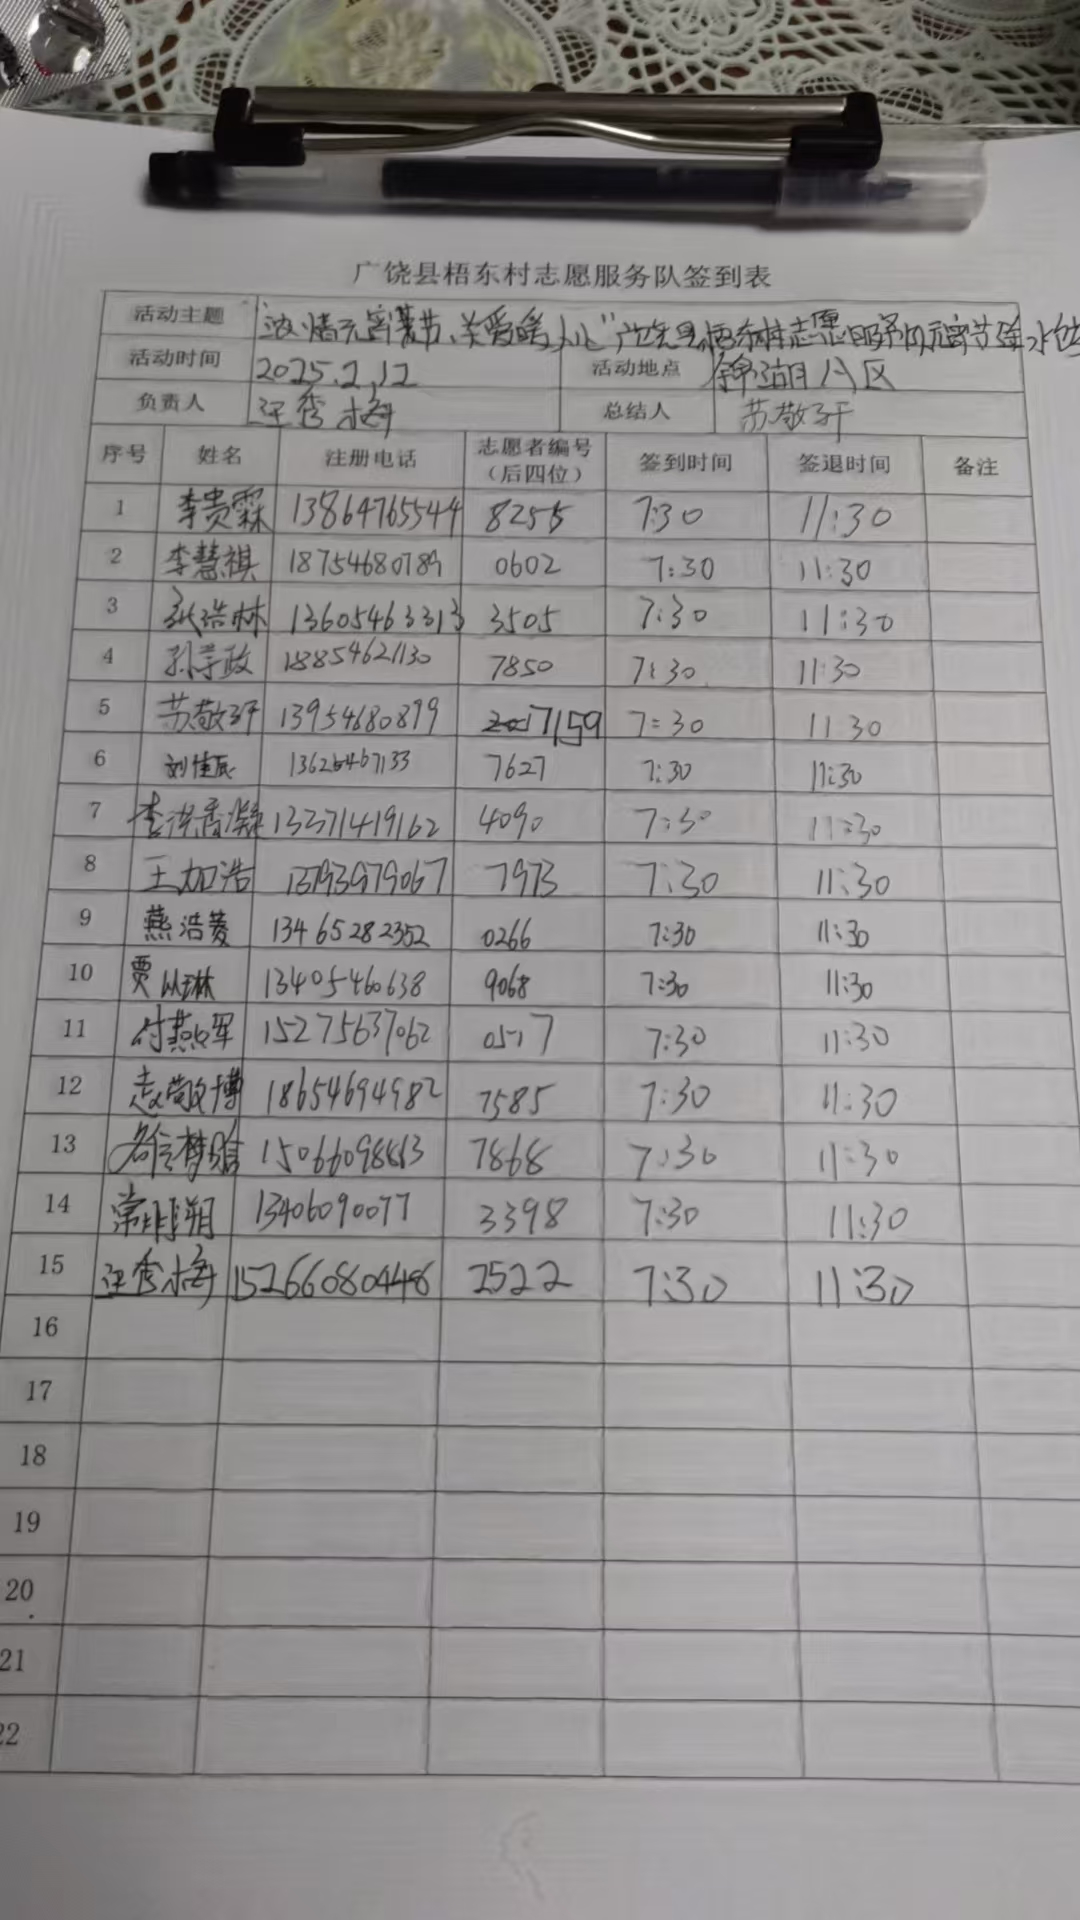 广饶县梧东村志愿服务队签到表
活动主题 浓情元宵节、关爱暖人心"广饶县梧东村志愿服务队元宵节
活动时间 2025.2.12 活动地点 锦湖八区
负责人 汪秀梅 总结人 苏敬玕
序号 姓名 注册电话 志愿者编号（后四位） 签到时间 签退时间 备注
1 李贵霖 13864765544 8255 7:30 11:30
2 李慧祺 18754680789 0602 7:30 11:30
3 张浩林 13605463313 3505 7:30 11:30
4 孙学政 18854621130 7850 7:30 11:30
5 苏敬玕 13954680879 7159 7:30 11:30
6 刘佳辰 7627 7:30 11:30
7 李洪香凝 13371419162 4090 7:30 11:30
8 王加浩 13793979067 7973 7:30 11:30
9 燕浩菱 13465282352 0266 7:30 11:30
10 贾以琳 13405460638 9068 7:30 11:30
11 付燕军 15275637062 0517 7:30 11:30
12 赵敬博 18654694982 7585 7:30 11:30
13 7868 7:30 11:30
14 常朔 13406090077 3398 7:30 11:30
15 汪秀梅 15266080448 2522 7:30 11:30
16
17
18
19
20
21
22